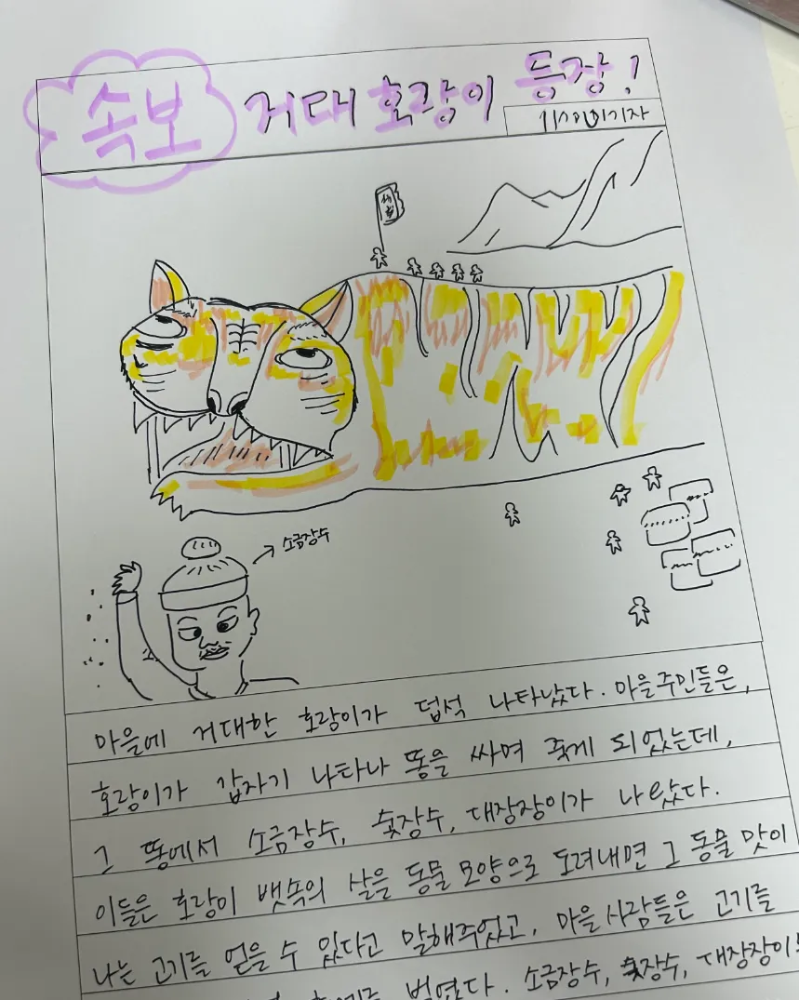 속보 거대 호랑이 등장!
기자
소금장수
마을에 거대한 호랑이가 덥석 나타났다. 마을주민들은,
호랑이가 갑자기 나타나 똥을 싸며 죽게 되었는데,
그 똥에서 소금장수, 숯장수, 대장장이가 나왔다.
이들은 호랑이 뱃속의 살을 동물 모양으로 도려내면 그 동물 맛이
나는 고기를 얻을 수 있다고 말해주었고, 마을 사람들은 고기를
벌였다. 소금장수, 숯장수, 대장장이